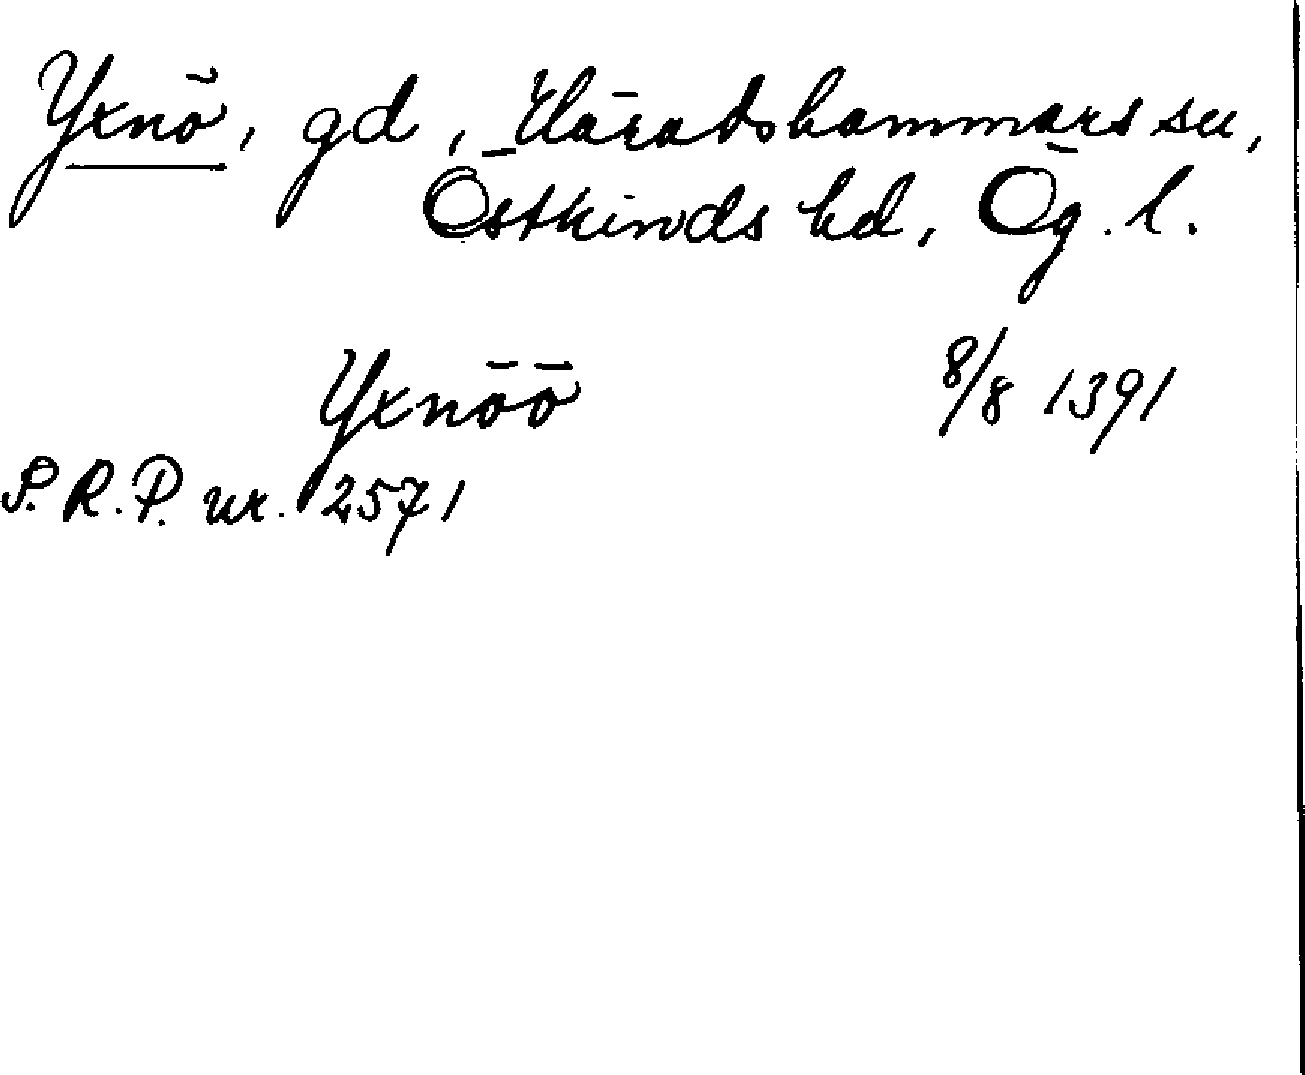 Yxnö, gd, Häradshammars sn,
Östkinds hd, Ög. l.
Yxnöö 8/8 1391
S. R. P. nr. 2571